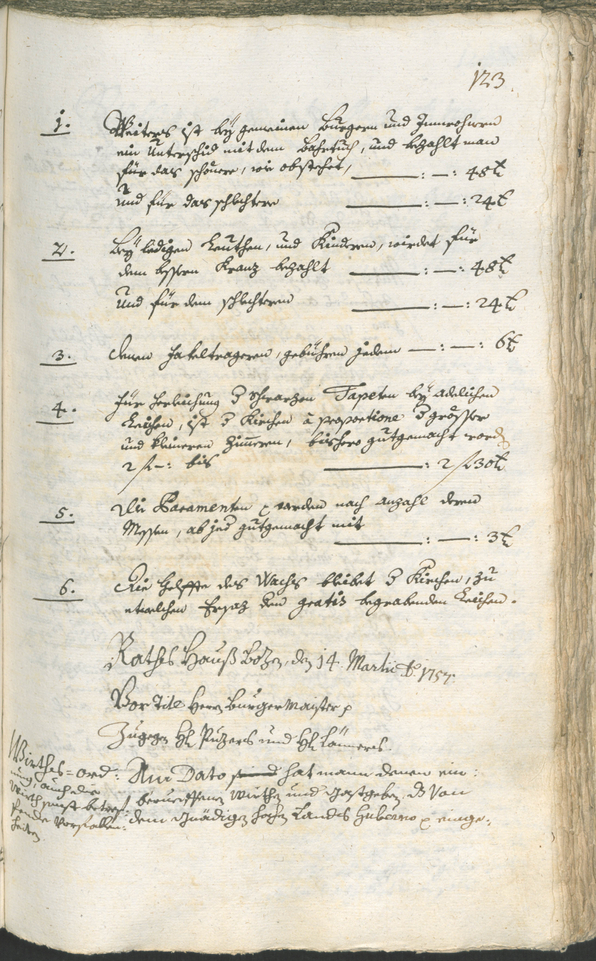 123.
1. Weiters ist bey gemeinen Burgern und Innwohnern
ein Unterschid mit dem Bahrtuch, und bezahlt man
für das schönere, wie obstehet, — : — : 48 k
und für das schlechtere — : — : 24 k
2. Bey ledigen Leuthen, und Kindern, wirdet für
dem bessern Kranz bezahlt — : — : 48 k
und für dem schlechteren — : — : 24 k
3. denen Fakeltrageren, gebühren jedem — : — : 6 k
4. für herleichung d schwarzen Tapeten bey adelichen
Leichen, ist d Kirchen à proportione d grösser
und kleineren Zimmeren, bishero gutgemacht word
2 f — : bis — : 2 f 30 k
5. die Paramenten werden nach anzahl deren
Messen, ab jed gutgemacht mit
— : — : 3 k
6. Die helffte des Wachs bleibet d Kirchen, zu
etwelchen Ersaz den gratis begrabenden Leichen.
Raths Hauß Bozen, den 14. Martii Ao 1757.
Vor Titl Herrn Burgermaister p
Zugegen Hl Puzers und Hl
Wirths=ord: Anno Dato hat mann denen ein:
nung, auch die
Wirth sunst betref: beruessenen Wirthen und Gastgeben, ds von
fende Vorfallen: dem Gnädigen hohen Landts Guberno p einge:
heiten